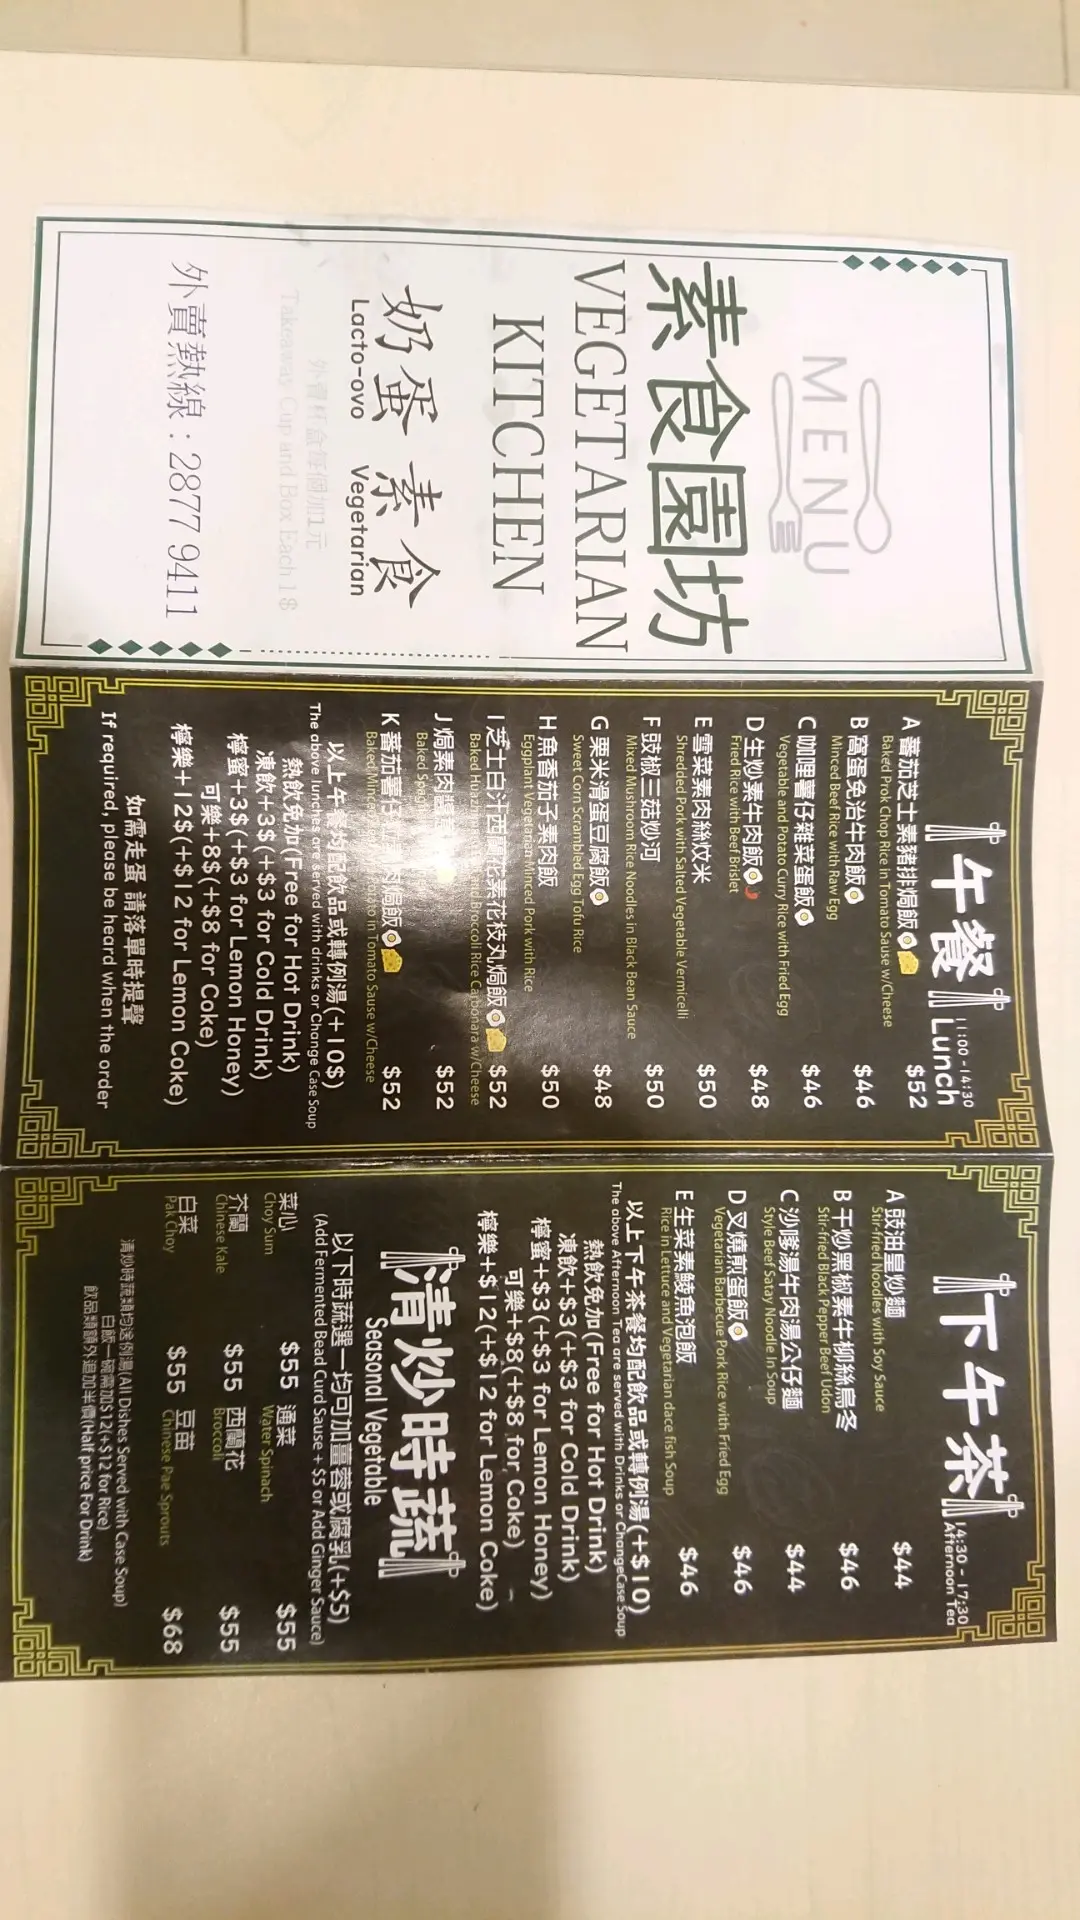 MENU
素食園坊
VEGETARIAN
KITCHEN
奶蛋 素食
Lacto-ovo Vegetarian
外賣杯盒每個加1元
Takeaway Cup and Box Each 1$
外賣熱線 : 2877 9411
午餐 11:00 -14:30
Lunch
A 蕃茄芝士素豬排焗飯 $52
Baked Prok Chop Rice in Tomato Sause w/Cheese
B 窩蛋免治牛肉飯 $46
Minced Beef Rice with Raw Egg
C 咖哩薯仔雜菜蛋飯 $46
Vegetable and Potato Curry Rice with Fried Egg
D 生炒素牛肉飯 $48
Fried Rice with Beef Brislet
E 雪菜素肉絲炆米 $50
Shredded Pork with Salted Vegetable Vermicelli
F 豉椒三菇炒河 $50
Mixed Mushroom Rice Noodles in Black Bean Sauce
G 粟米滑蛋豆腐飯 $48
Sweet Corn Scrambled Egg Tofu Rice
H 魚香茄子素肉飯 $50
Eggplant Vegetarian Minced Pork with Rice
I 芝士白汁西蘭花素花枝丸焗飯 $52
Baked Broccoli Rice Carbonara w/Cheese
J 焗素肉醬 $52
Baked
K 蕃茄薯仔 肉焗飯 $52
Baked Minced in Tomato Sause w/Cheese
以上午餐均配飲品或轉例湯(+10$)
The above lunches are served with drinks or Change Case Soup
熱飲免加(Free for Hot Drink)
凍飲+3$(+$3 for Cold Drink)
檸蜜+3$(+$3 for Lemon Honey)
可樂+8$(+$8 for Coke)
檸樂+12$(+$12 for Lemon Coke)
如需走蛋 請落單時提聲
If required, please be heard when the order
下午茶 14:30 - 17:30
Afternoon Tea
A 豉油皇炒麵 $44
Stir-fried Noodles with Soy Sauce
B 干炒黑椒素牛柳絲烏冬 $46
Stir-fried Black Pepper Beef Udon
C 沙嗲湯牛肉湯公仔麵 $44
Style Beef Satay Noodle In Soup
D 叉燒煎蛋飯 $46
Vegetarian Barbecue Pork Rice with Fried Egg
E 生菜素鯪魚泡飯 $46
Rice in Lettuce and Vegetarian dace fish Soup
以上下午茶餐均配飲品或轉例湯(+$10)
The above Afternoon Tea are served with Drinks or ChangeCase Soup
熱飲免加(Free for Hot Drink)
凍飲+$3(+$3 for Cold Drink)
檸蜜+$3(+$3 for Lemon Honey)
可樂+$8(+$8 for Coke)
檸樂+$12(+$12 for Lemon Coke)
清炒時蔬
Seasonal Vegetable
以下時蔬選一均可加薑蓉或腐乳(+$5)
(Add Fermented Bead Curd Sauce + $5 or Add Ginger Sauce)
菜心 $55 通菜 $55
Choy Sum Water Spinach
芥蘭 $55 西蘭花 $55
Chinese Kale Broccoli
白菜 $55 豆苗 $68
Pak Choy Chinese Pae Sprouts
清炒時蔬類均送例湯(All Dishes Served with Case Soup)
白飯一碗需加$12(+$12 for Rice)
飲品類額外追加半價(Half price For Drink)